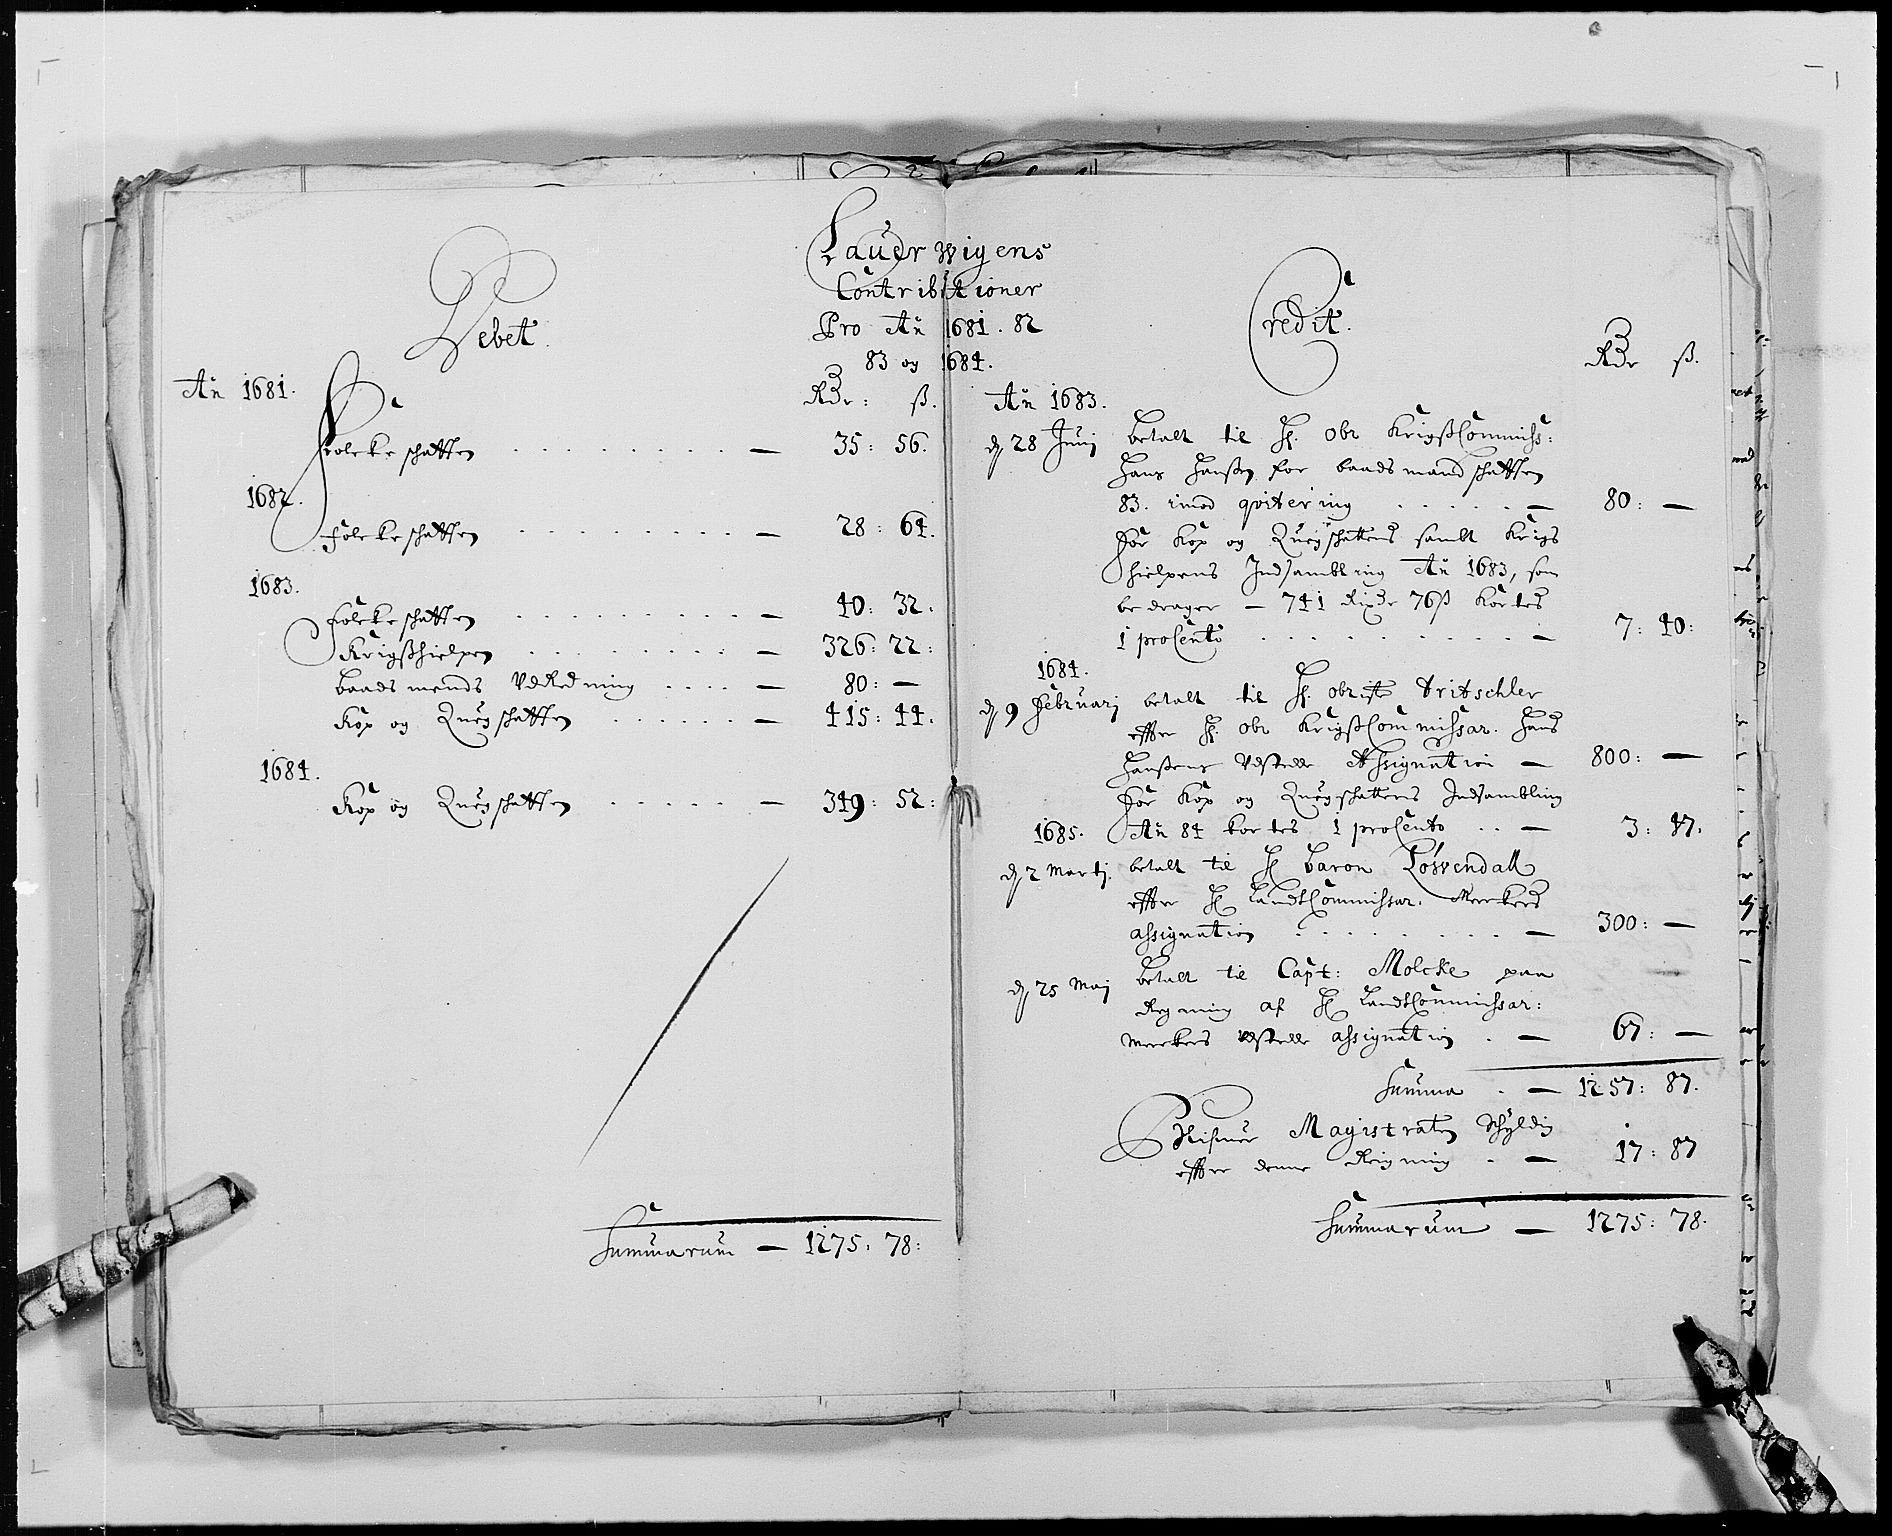 Lauerwigens
Contributioner
Pro Añ 1681. 82
83 og 1684.
Debet.
Rdr: ß.
Añ 1681.
Folcke schatten . . . . . . . . — 35: 56.
1682.
Folcke schatten . . . . . . . . — 28: 64.
1683.
Folcke schatten . . . . . . . . — 40: 32.
Krigßhielpen . . . . . . . — 326: 22:
baadsmends VdRedning . . . . — 80: —
Kop og Quegschatten . . . . . . — 415: 44.
1684.
Kop og Quegschatten . . . . . — 349: 52:
Summarum — 1275. 78:
Credit.
Rdr ß.
Añ 1683.
d 28 Junij betalt til H. Obr KrigßCommiss:
Hans Hanßen for baadsmandschatten
83. imod qvitering . . . . . — 80: —
For Kop og Quegschattens sambt Krigs
hielpens Indsambling Añ 1683, som
bedrager — 741 Rixdr 76ß Kortes
1 proCento . . . . . . . . . . — 7: 40:
1684.
d 9 Februarj betalt til H. obrist tritschler
effter H. obr KrigßCommissar. Hans
Hanßens Vdstede Assignation — 800: —
For Kop og Quegschattens Indsambling
1685. Añ 84 kortes 1 proCento . . — 3: 47.
d 2 Martij. betalt til H Baron Löwendall
effter H LandtCommissar. Merckers
assignation . . . . . . . . — 300: —
d 25 Maj Betalt til Capt: Molcke paa
Regning af H LandtCommissar:
Merckers Vdstede assignation . — 67: —
Summa . — 1257: 87.
Blifuer Magistraten Schyldig
effter denne Reigning . — 17: 87
Summarum — 1275: 78.